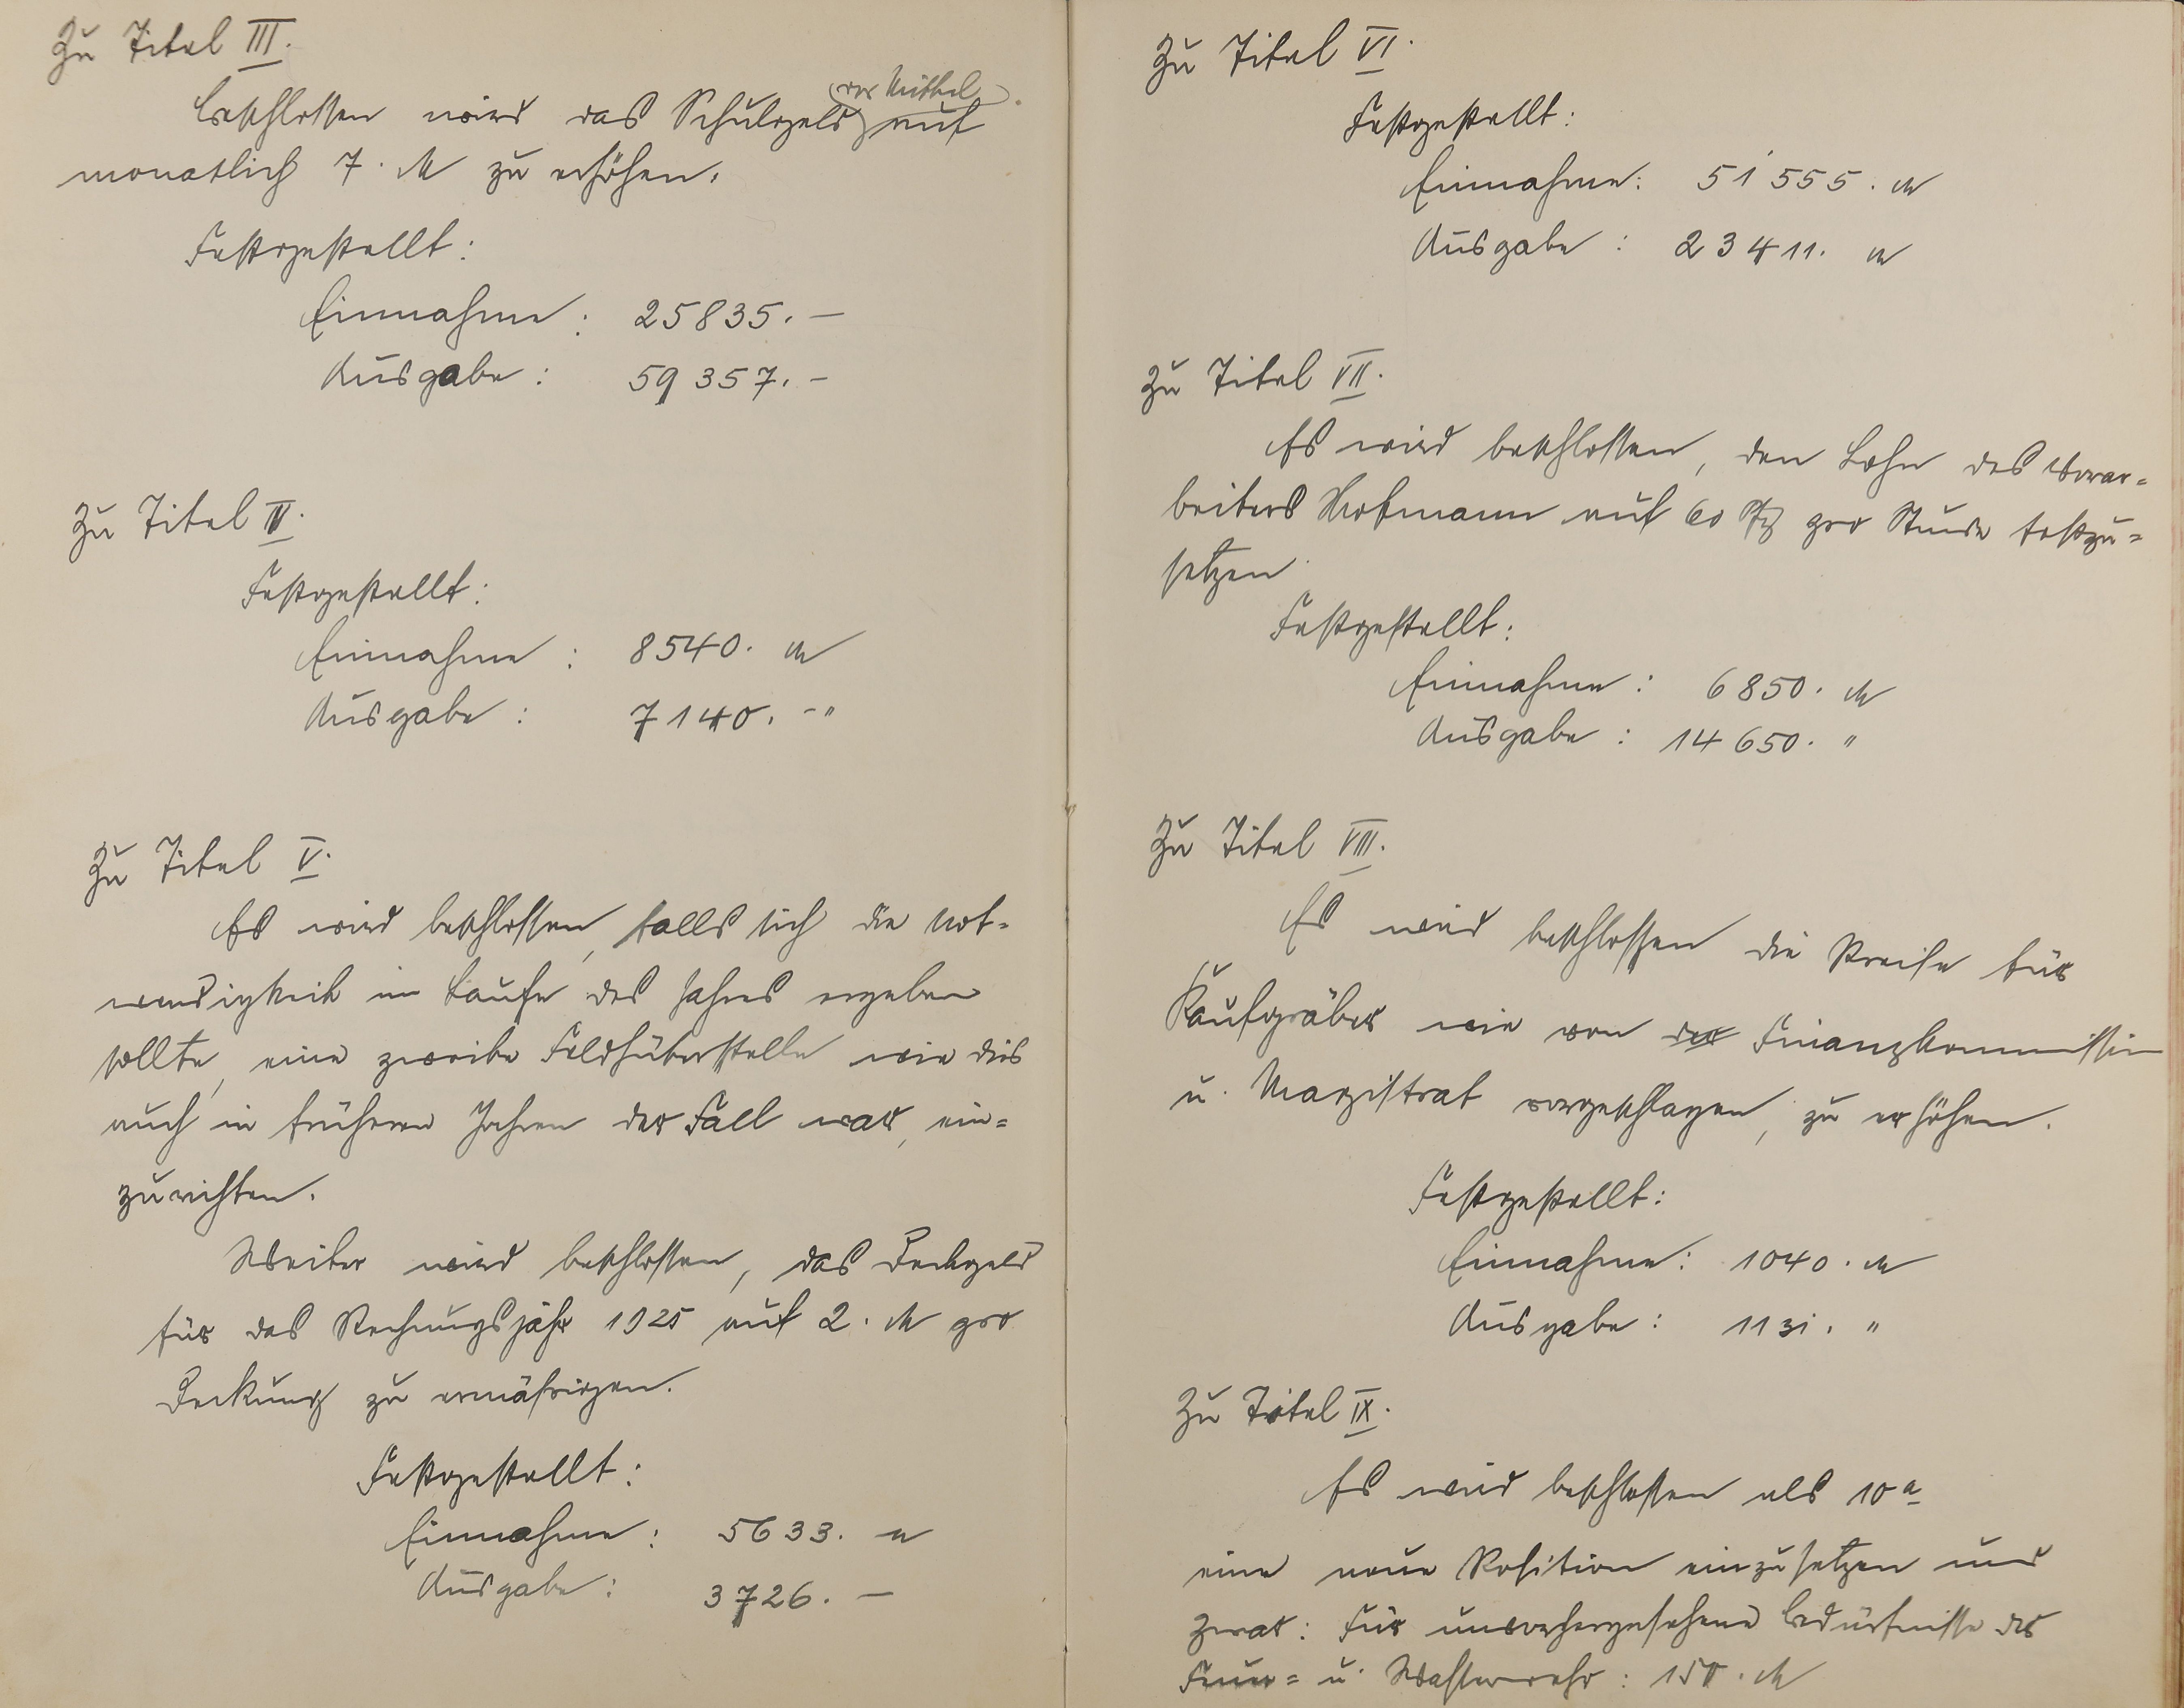 Zu Titel III.
(der Mittel-)
Beschlossen wird das Schulgeld auf
monatlich 7. M zu erhöhen.
Festgestellt:
Einnahme: 25835. —
Ausgabe: 59357. —
Zu Titel IV.
Festgestellt:
Einnahme: 8540. M
Ausgabe: 7140. -"
Zu Titel V.
Es wird beschlossen, falls sich die Not-
wendigkeit im Laufe des Jahres ergeben
sollte, eine zweite Feldhüterstelle wie dies
auch in früheren Jahren der Fall war, ein-
zurichten.
Weiter wird beschlossen, das Deckgeld
für das Rechnungsjahr 1925 auf 2. M pro
Deckung zu ermäßigen.
Festgestellt:
Einnahme: 5633. M
Ausgabe: 3726. —
Zu Titel VI.
Festgestellt:
Einnahme: 51555. M
Ausgabe: 23411. M
Zu Titel VII.
Es wird beschlossen, den Lohn des Vorar-
beiters Hofmann auf 60 Pfg pro Stunde festzu-
setzen.
Festgestellt:
Einnahme: 6850. M
Ausgabe: 14650. "
Zu Titel VIII.
Es wird beschlossen die Preise für
Kaufgräber wie von der Finanzkommission
u. Magistrat vorgeschlagen, zu erhöhen.
Festgestellt:
Einnahme: 1040. M
Ausgabe: 1131. "
Zu Titel IX.
Es wird beschlossen als 10a
eine neue Position einzusetzen und
zwar: Für unvorhergesehene Bedürfnisse der
Feuer- u. Wasserwehr: 150. M